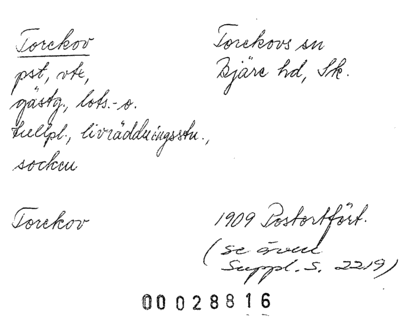 Torekov
Torekovs sn
pst, vtt,
Bjäre hd, Sk.
gästg, lots.- o.
tullpl., livräddningsstn.,
socken
Torekov
1909 Postortfört.
(se även
Suppl. S. 2219)
00028816